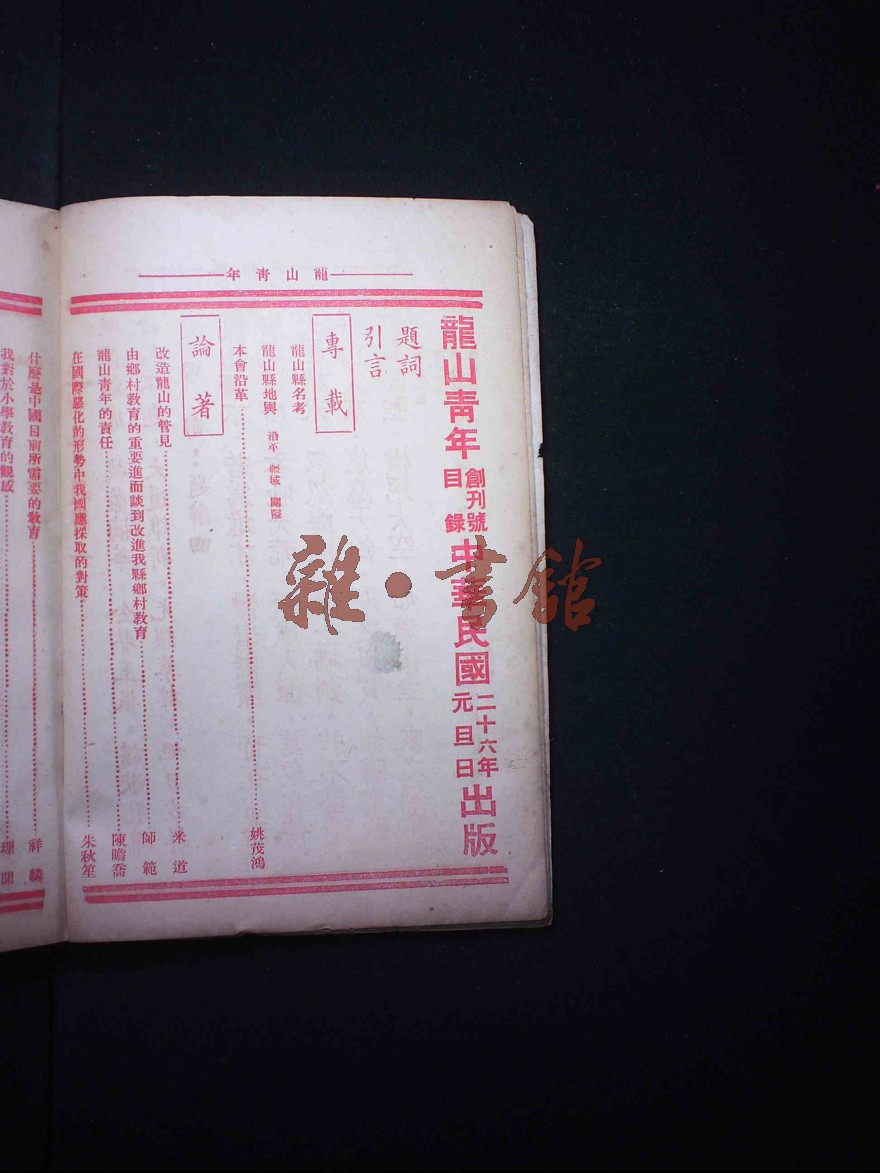 龍山青年
龍山青年 創刊號目錄 中華民國二十六年元旦日出版
題詞
引言
專載
龍山縣名考
龍山縣地輿 沿革 疆域 關隘
本會沿革 姚茂鴻
論著
改造龍山的管見 米道
由鄉村教育的重要進而談到改進我縣鄉村教育 師範
龍山青年的責任 陳瞻喬
在國際惡化的形勢中我國應採取的對策 朱秋笙
什麼是中國目前所需要的教育 祥麟
我對於小學教育的觀感 理
雜·書館